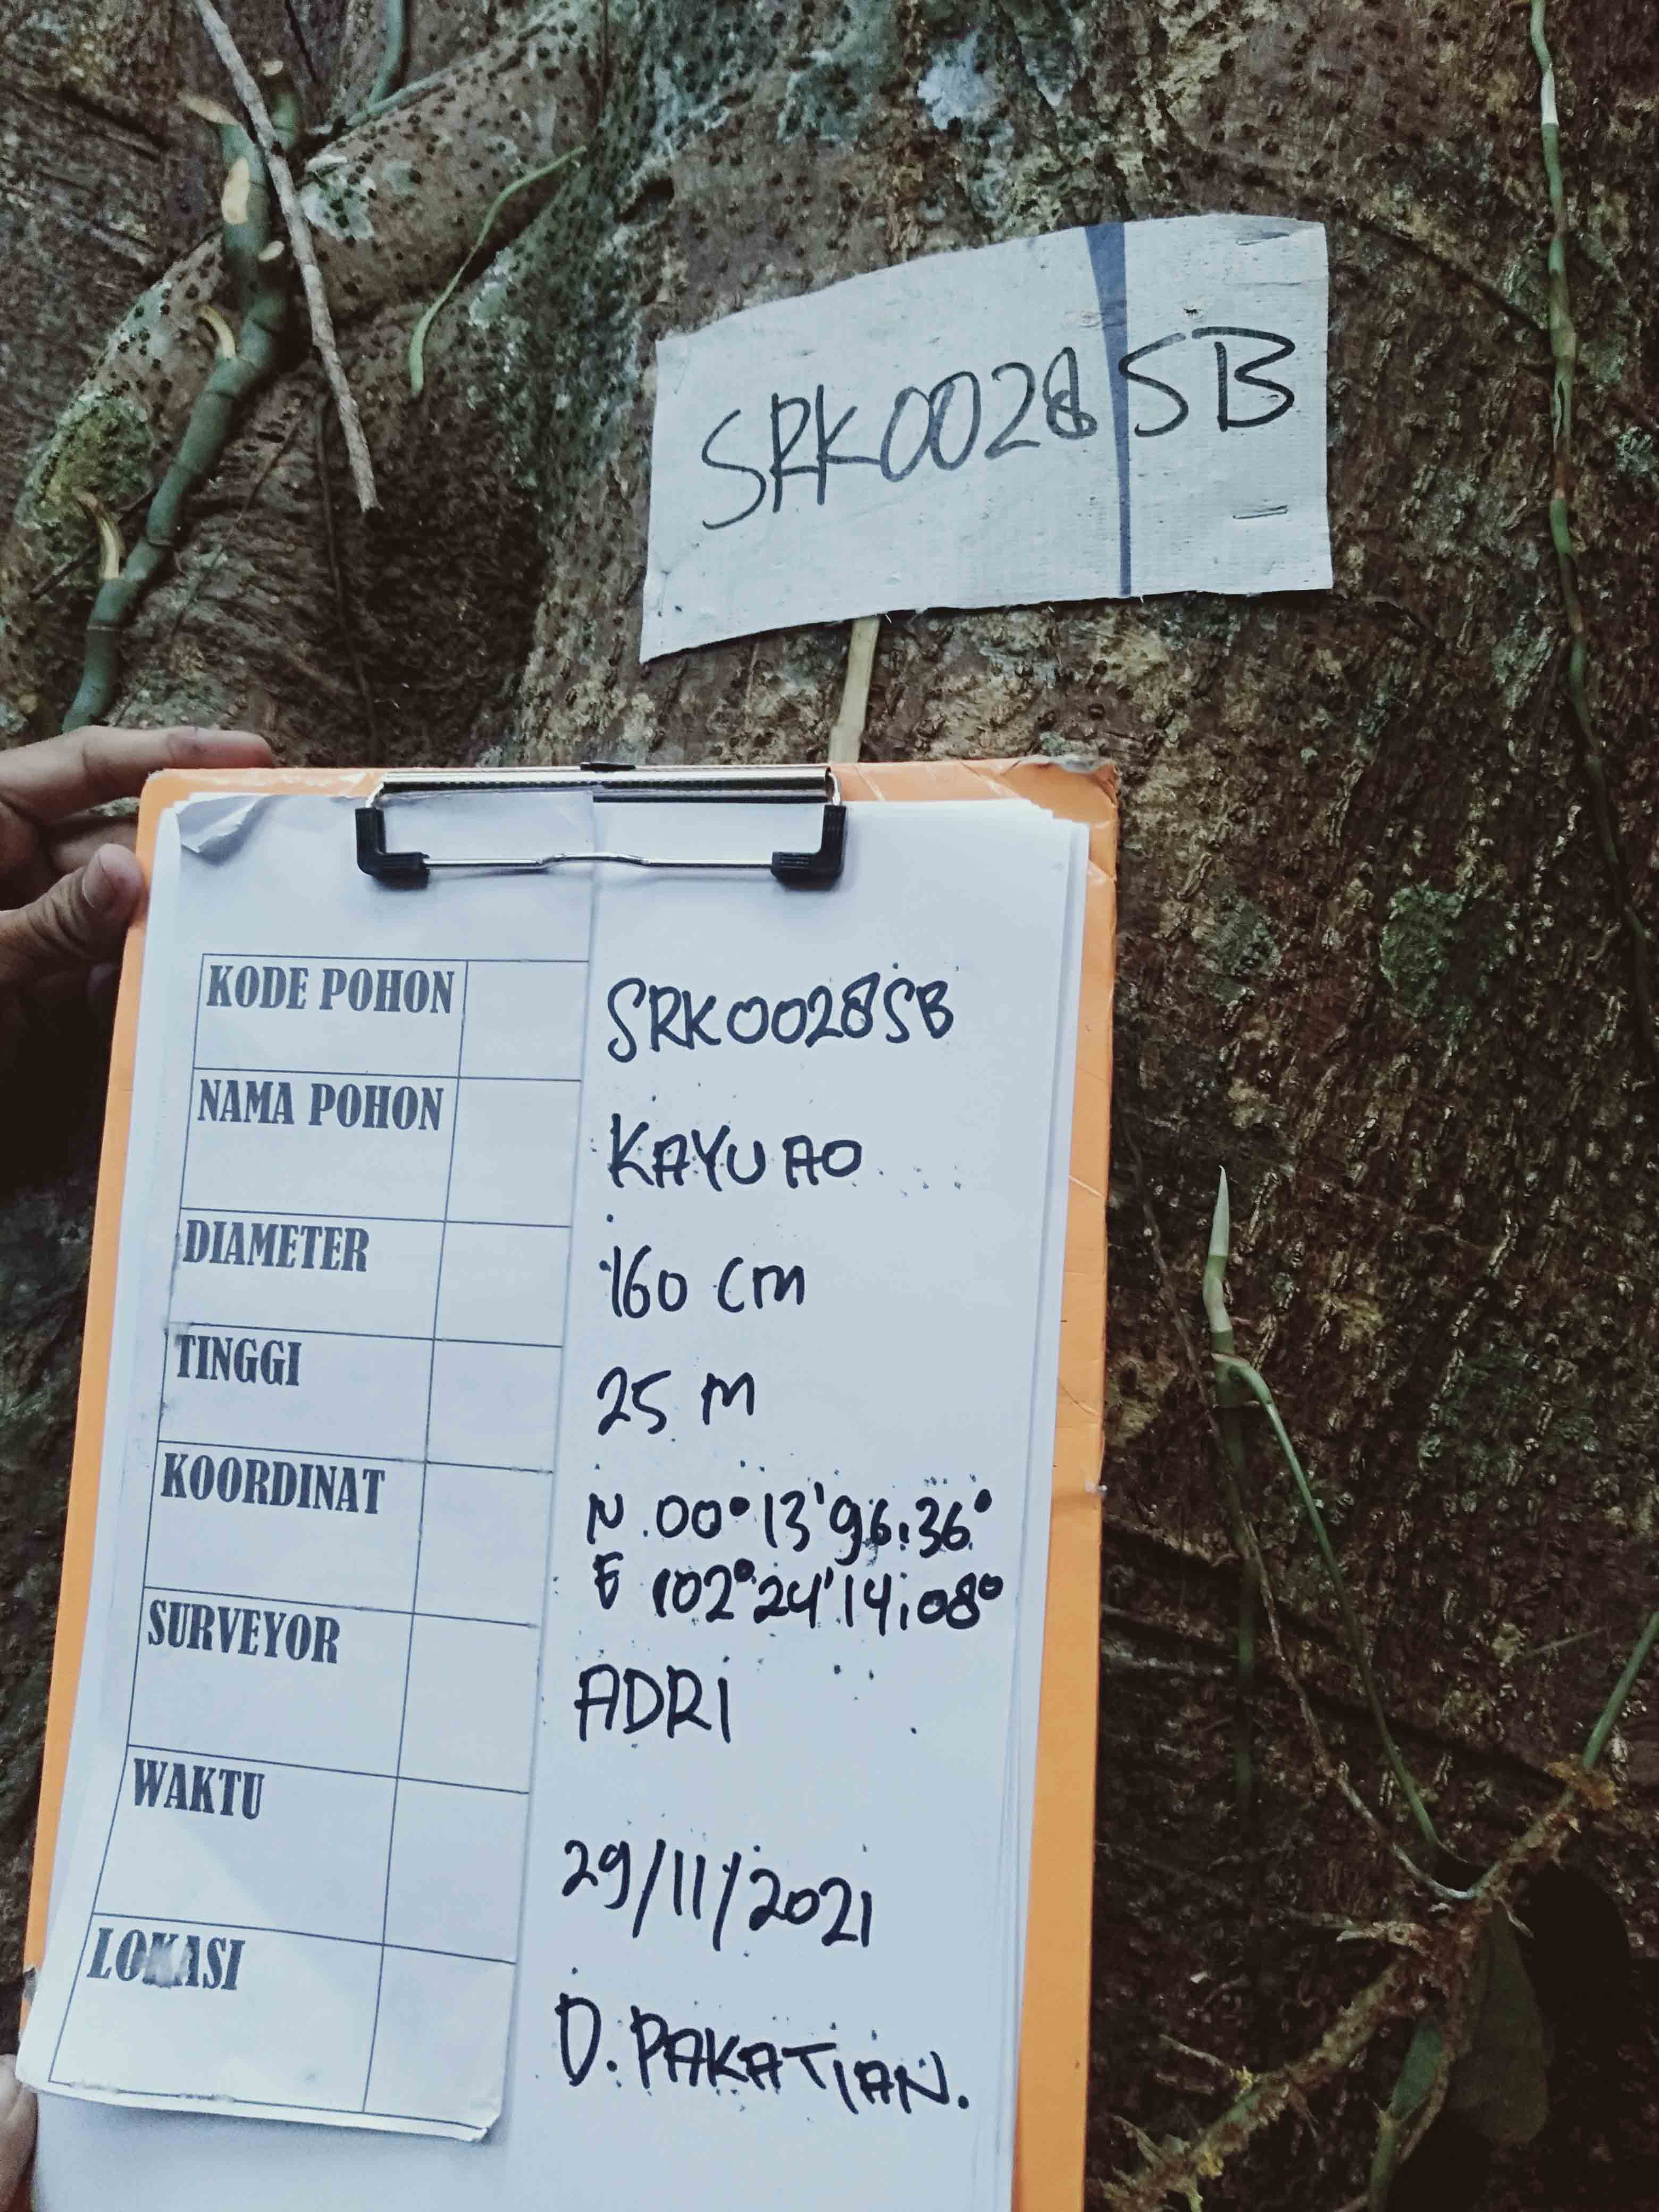 SRK0028SB
KODE POHON SRK0028SB
NAMA POHON KAYU AO
DIAMETER 160 cm
TINGGI 25 M
KOORDINAT N.00°13'96:36°
E 102°24'14;08°
SURVEYOR ADRI
WAKTU 29/11/2021
LOKASI D. PAKATIAN.